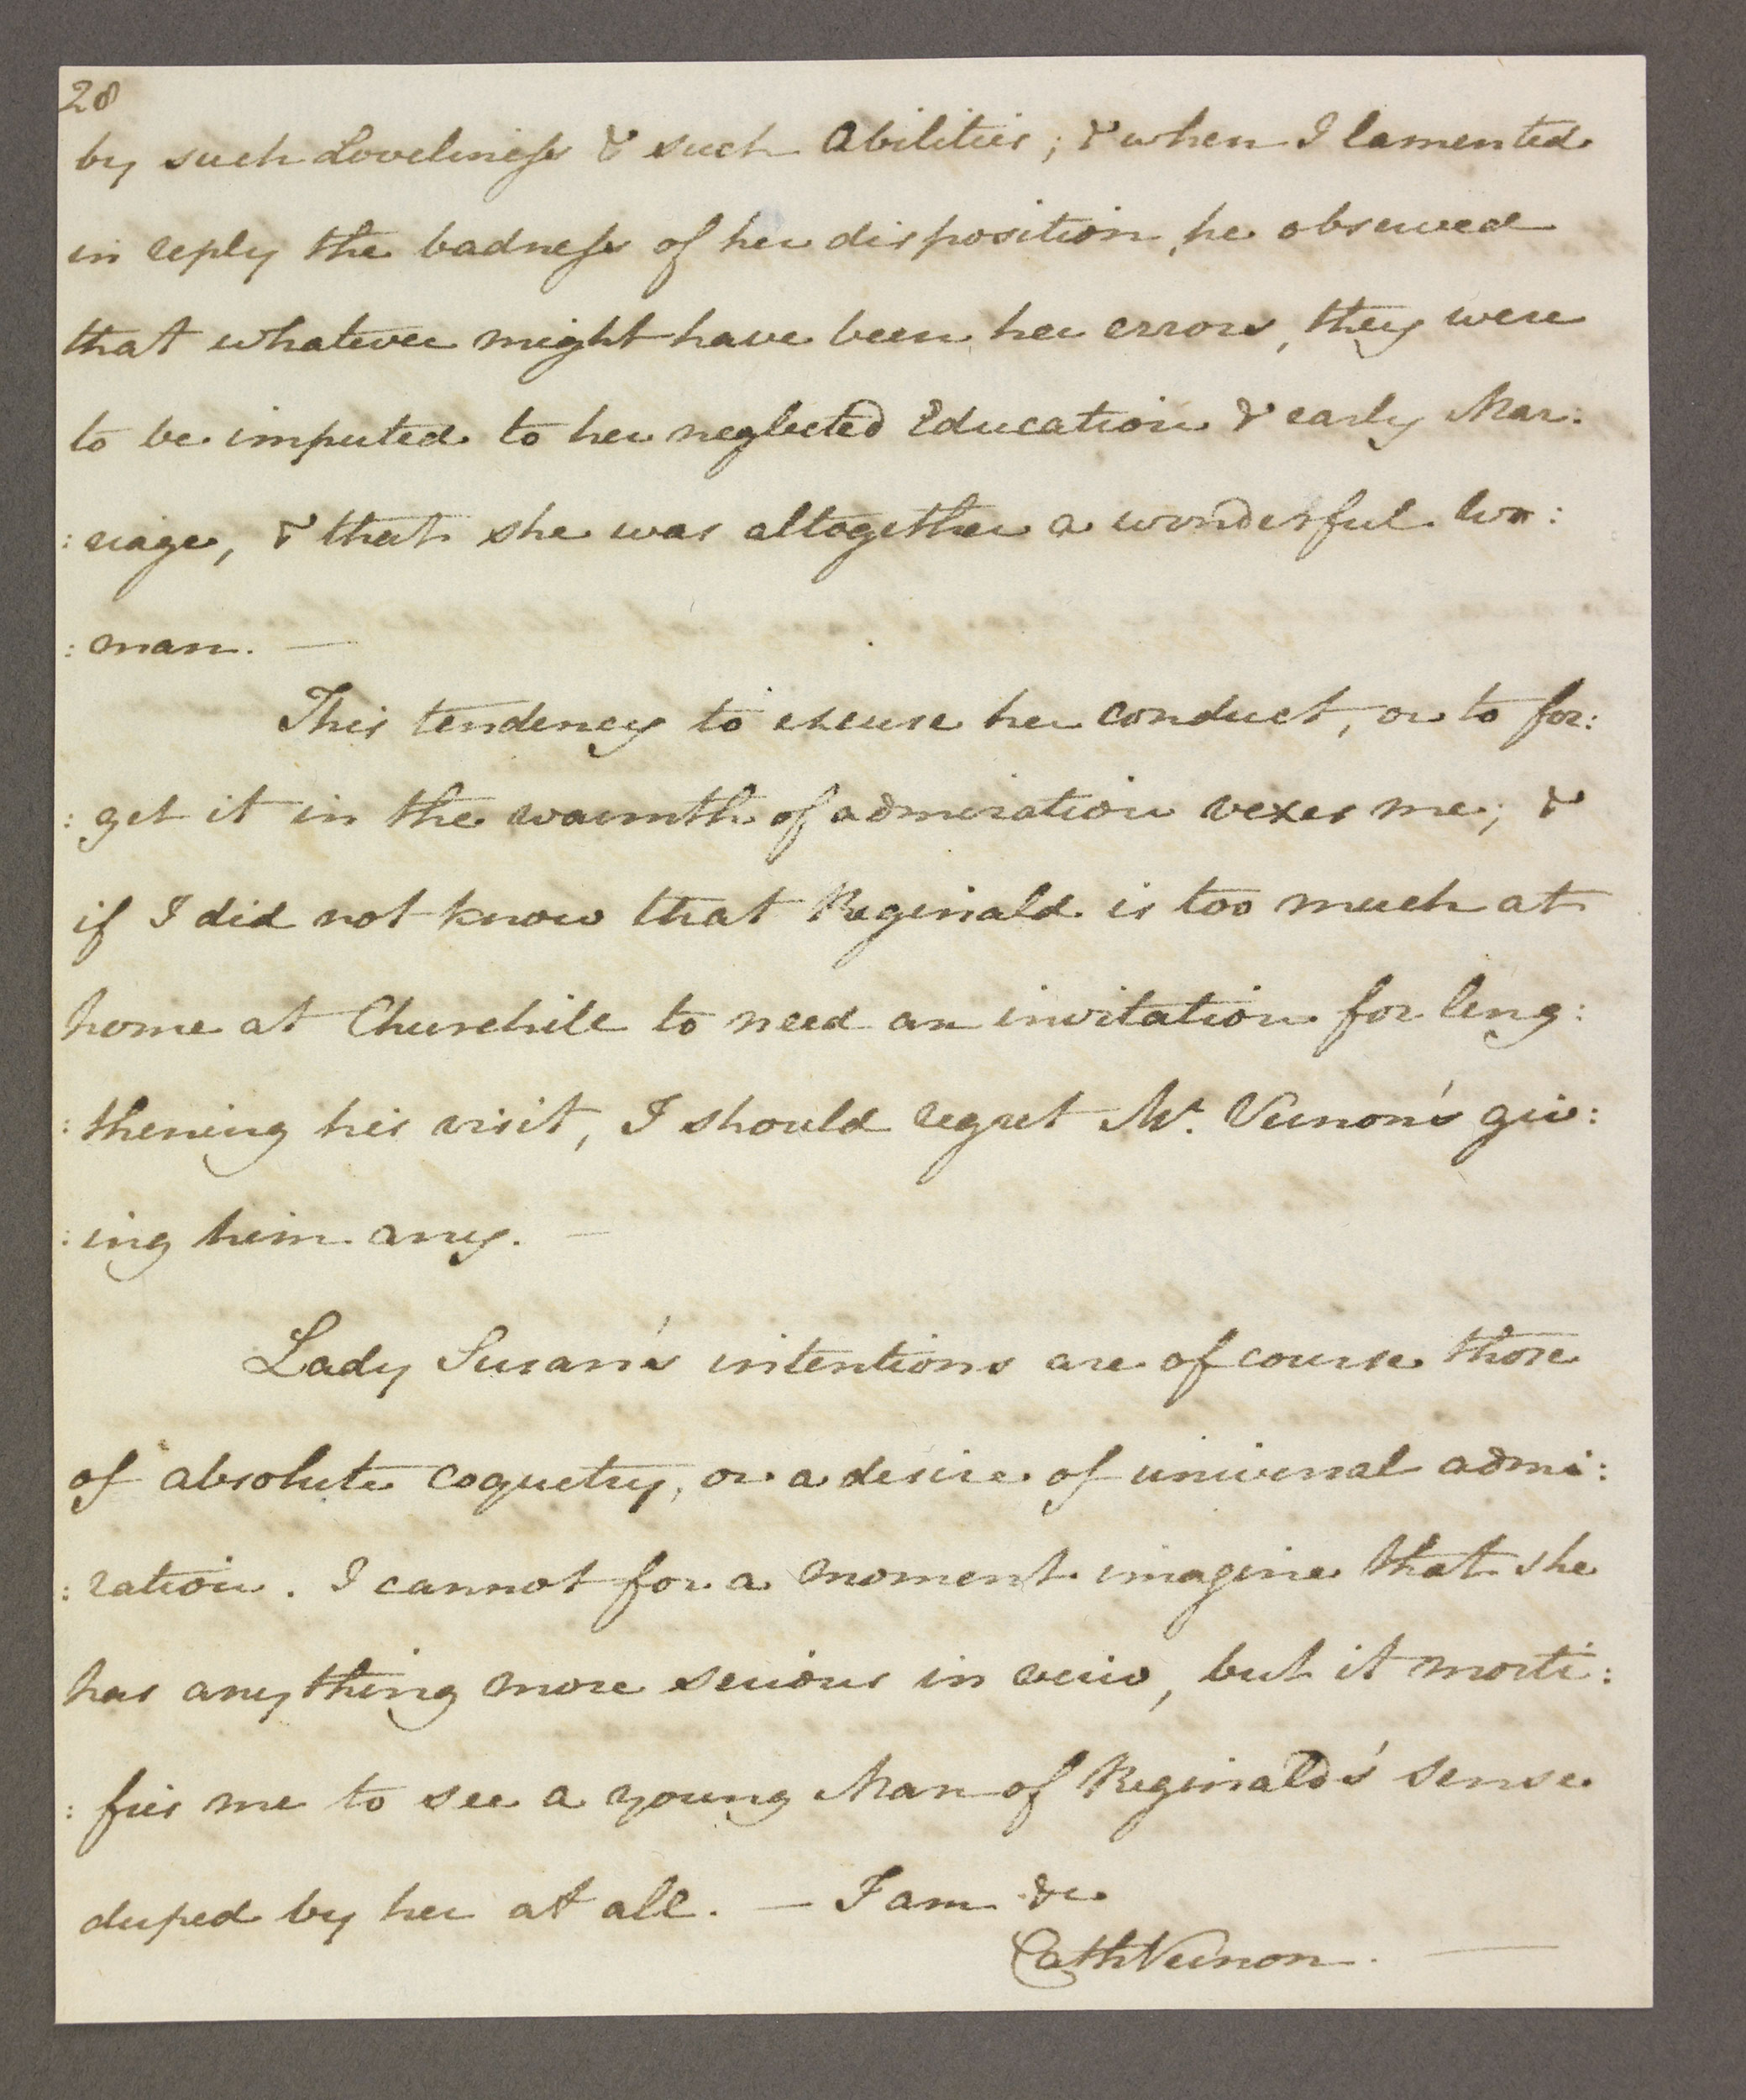 28
by such Loveliness & such Abilities; & when I lamented
in reply the badness of her disposition, he observed
that whatever might have been her errors, they were
to be imputed to her neglected Education & early Mar:
:riage, & that she was altogether a wonderful Wo:
:man. —
This tendency to excuse her conduct, or to for:
:get it in the warmth of admiration vexes me; &
if I did not know that Reginald is too much at
home at Churchill to need an invitation for leng:
:thening his visit, I should regret Mr. Vernon's giv:
:ing him any. —
Lady Susan's intentions are of course those
of absolute coquetry, or a desire of universal admi:
:ration. I cannot for a moment imagine that she
has anything more serious in veiw, but it morti:
:fies me to see a young Man of Reginald's sense
duped by her at all. — I am &c.
Cath Vernon. —